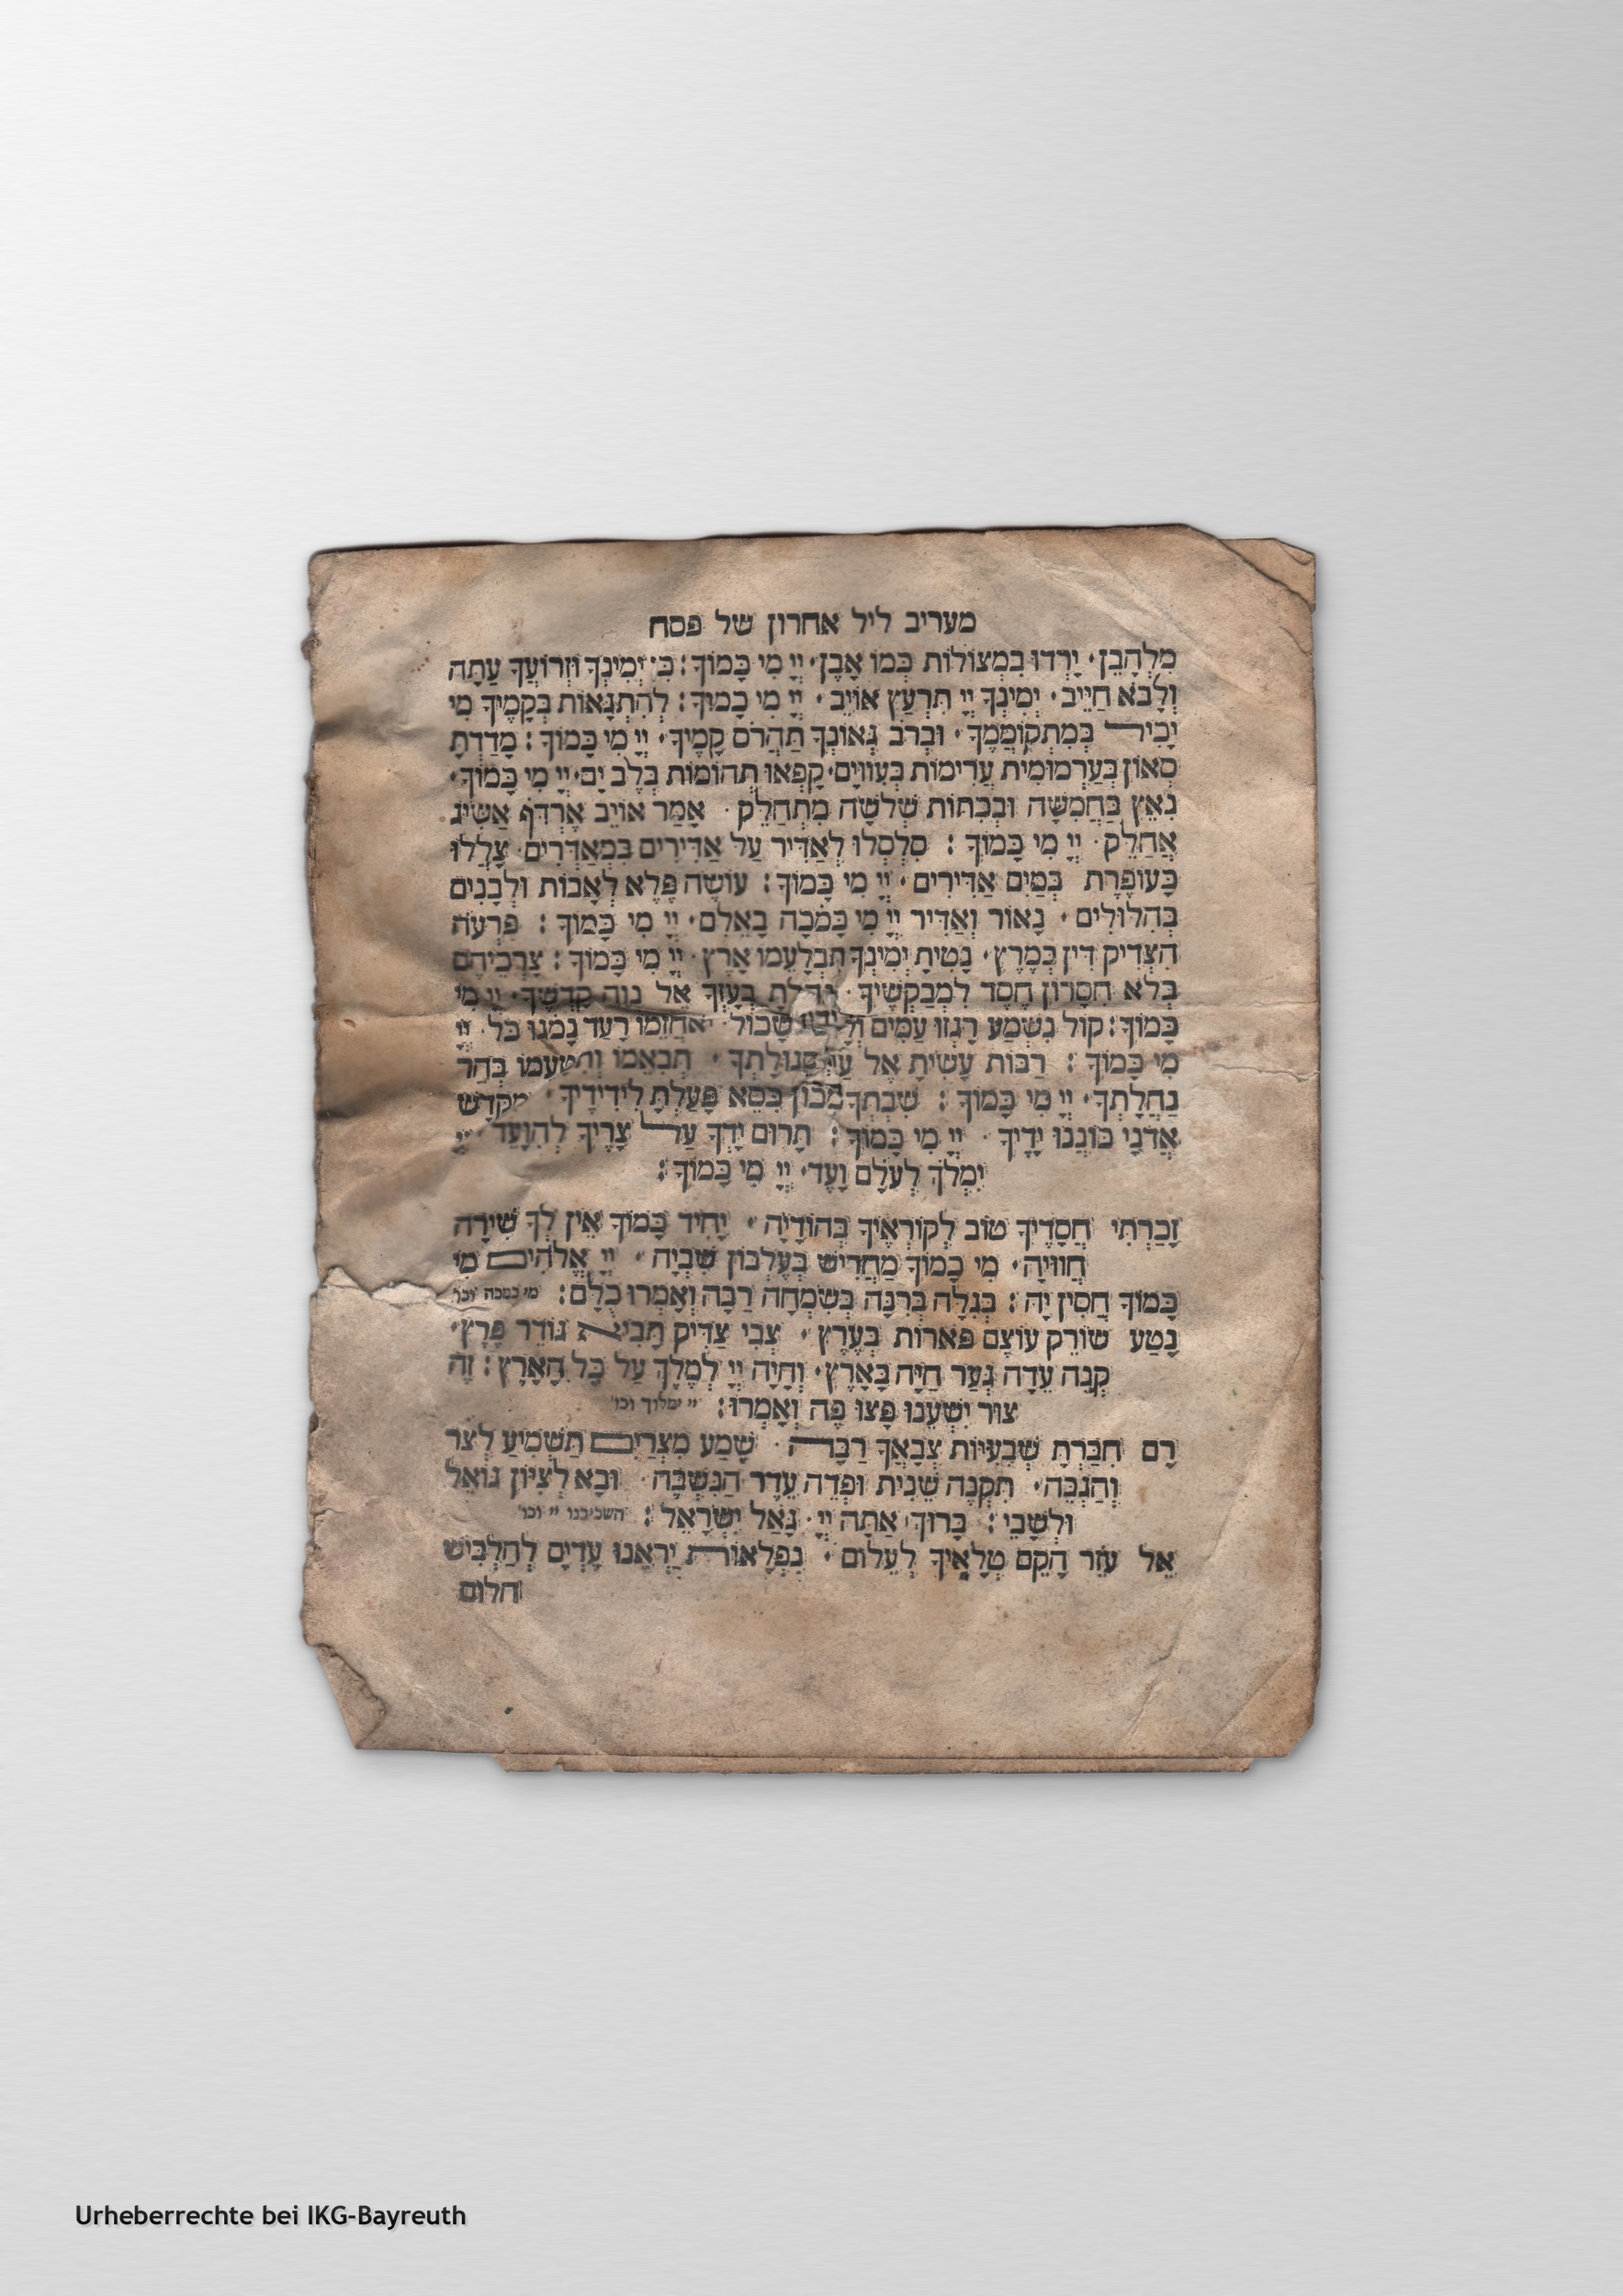 מעריב ליל אחרון של פסח
מִלְהָבֵן· יָרְדוּ בִמְצוֹלוֹת כְּמוֹ אָבֶן· יְיָ מִי כָּמוֹךָ: כִּי יְמִינְךָ וּזְרוֹעֲךָ עַתָּה
וְלָבֹא חַיֵּיב· יְמִינְךָ יְיָ תִּרְעַץ אוֹיֵב· יְיָ מִי כָמוֹךָ: לְהִתְגָּאוֹת בְּקָמֶיךָ מִי
יָכִיל בְּמִתְקוֹמֲמֶךָ· וּבְרֹב גְּאוֹנְךָ תַּהֲרֹס קָמֶיךָ· יְיָ מִי כָּמוֹךָ: מָדַדְתָּ
סְאוֹן בְּעַרְמוּמִית עֲרֵימוֹת בְּעִוּוּים· קָפְאוּ תְהוֹמוֹת בְּלֶב יָם· יְיָ מִי כָּמוֹךָ·
נִאֵץ בַּחֲמִשָּׁה וּבְכִתּוֹת שְׁלֹשָׁה מִתְחַלֵּק· אָמַר אוֹיֵב אֶרְדֹּף אַשִּׂיג
אֲחַלֵּק· יְיָ מִי כָּמוֹךָ: סִלְסְלוּ לְאַדִּיר עַל אַדִּירִים בְּמַאֲדִרִים· צָלֲלוּ
כָּעוֹפֶרֶת בְּמַיִם אַדִּירִים· יְיָ מִי כָּמוֹךָ: עוֹשֵׂה פֶּלֶא לְאָבוֹת וּלְבָנִים
בְּהִלּוּלִים· נָאוֹר וְאַדִּיר יְיָ מִי כָּמֹכָה בָאֵלִם· יְיָ מִי כָּמוֹךָ: פַּרְעֹה
הִצְדִּיק דִּין בְּמֶרֶץ· נָטִיתָ יְמִינְךָ תִּבְלָעֵמוֹ אָרֶץ· יְיָ מִי כָּמוֹךָ: צָרְכֵיהֶם
בְּלֹא חִסָּרוֹן חֶסֶד לִמְבַקְשֶׁיךָ· נֵהַלְתָּ בְעָזְּךָ אֶל נְוֵה קָדְשֶׁךָ· יְיָ מִי
כָּמוֹךָ: קוֹל נִשְׁמַע רָגְזוּ עַמִּים שָׁכוֹל· יֹאחֲזֵמוֹ רָעַד נָמֹגוּ כֹּל· יְיָ
מִי כָּמוֹךָ: רַבּוֹת עָשִׂיתָ אֶל סְגוּלָּתְךָ· תְּבִאֵמוֹ וְתִטָּעֵמוֹ בְּהַר
נַחֲלָתְךָ· יְיָ מִי כָּמוֹךָ: שִׁבְתְּךָ מָכוֹן כִּסֵּא פָּעַלְתָּ לִידִידֶיךָ· מִקְּדָשׁ
אֲדֹנָי כּוֹנֲנוּ יָדֶיךָ· יְיָ מִי כָּמוֹךָ: תָּרוּם יָדְךָ עַל צָרֶיךָ לְהִוָּעֵד· יְיָ
יִמְלֹךְ לְעֹלָם וָעֶד· יְיָ מִי כָּמוֹךָ:
זָכַרְתִּי חֲסָדֶיךָ טוֹב לְקוֹרְאֶיךָ בְּהוֹדָיָה· יָחִיד כָּמוֹךָ אֵין לְךָ שִׁירָה
חֲוִוּיָה· מִי כָמוֹךָ מַחֲרִישׁ בְּעֶלְבּוֹן שִׁבְיָה· יְיָ אֱלֹהִים מִי
כָּמוֹךָ חֲסִין יָהּ: בְּגִלָּה בְּרִנָּה בְּשִׂמְחָה רַבָּה וְאָמְרוּ כֻלָּם: מי כמכה וכו'
נָטַע שׂוֹרֵק עוֹצֶם פֹּארוֹת בְּעֶרֶץ· צְבִי צַדִּיק תָּבִיא גּוֹדֵר פֶּרֶץ·
קְנֵה עֵדָה גְּעַר חַיָּה בָּאָרֶץ· וְהָיָה יְיָ לְמֶלֶךְ עַל כָּל הָאָרֶץ: זֶה
צוּר יִשְׁעֵנוּ פָּצוּ פֶה וְאָמְרוּ: יי ימלוך וכו'
רָם חִבַּרְתָּ שְׁבִעִיּוֹת צְבָאֲךָ רַבָּה· שֵׁמַע מִצְרַיִם תַּשְׁמִיעַ לְצֹר
וְהַנְּבֵּה· תִּקְנֶה שֵׁנִית וּפְדֵה עֵדֶר הַנִּשְׁבֶּה· וּבָא לְצִיּוֹן גּוֹאֵל
וּלְשָׁבֵי: בָּרוּךְ אַתָּה יְיָ· גָּאַל יִשְׂרָאֵל: השכיבנו יי וכו'
אֵל עֵזֶר הָקֵם טְלָאֶיךָ לְעֵלוֹם· נִפְלָאוֹת יַרְאֵנוּ עָדְיָם לְהַלְבִּישׁ
הלום
Urheberrechte bei IKG-Bayreuth